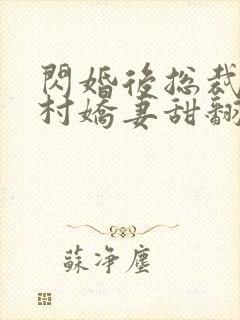 閃婚後總裁
村嬌妻甜翻
蘇淨塵